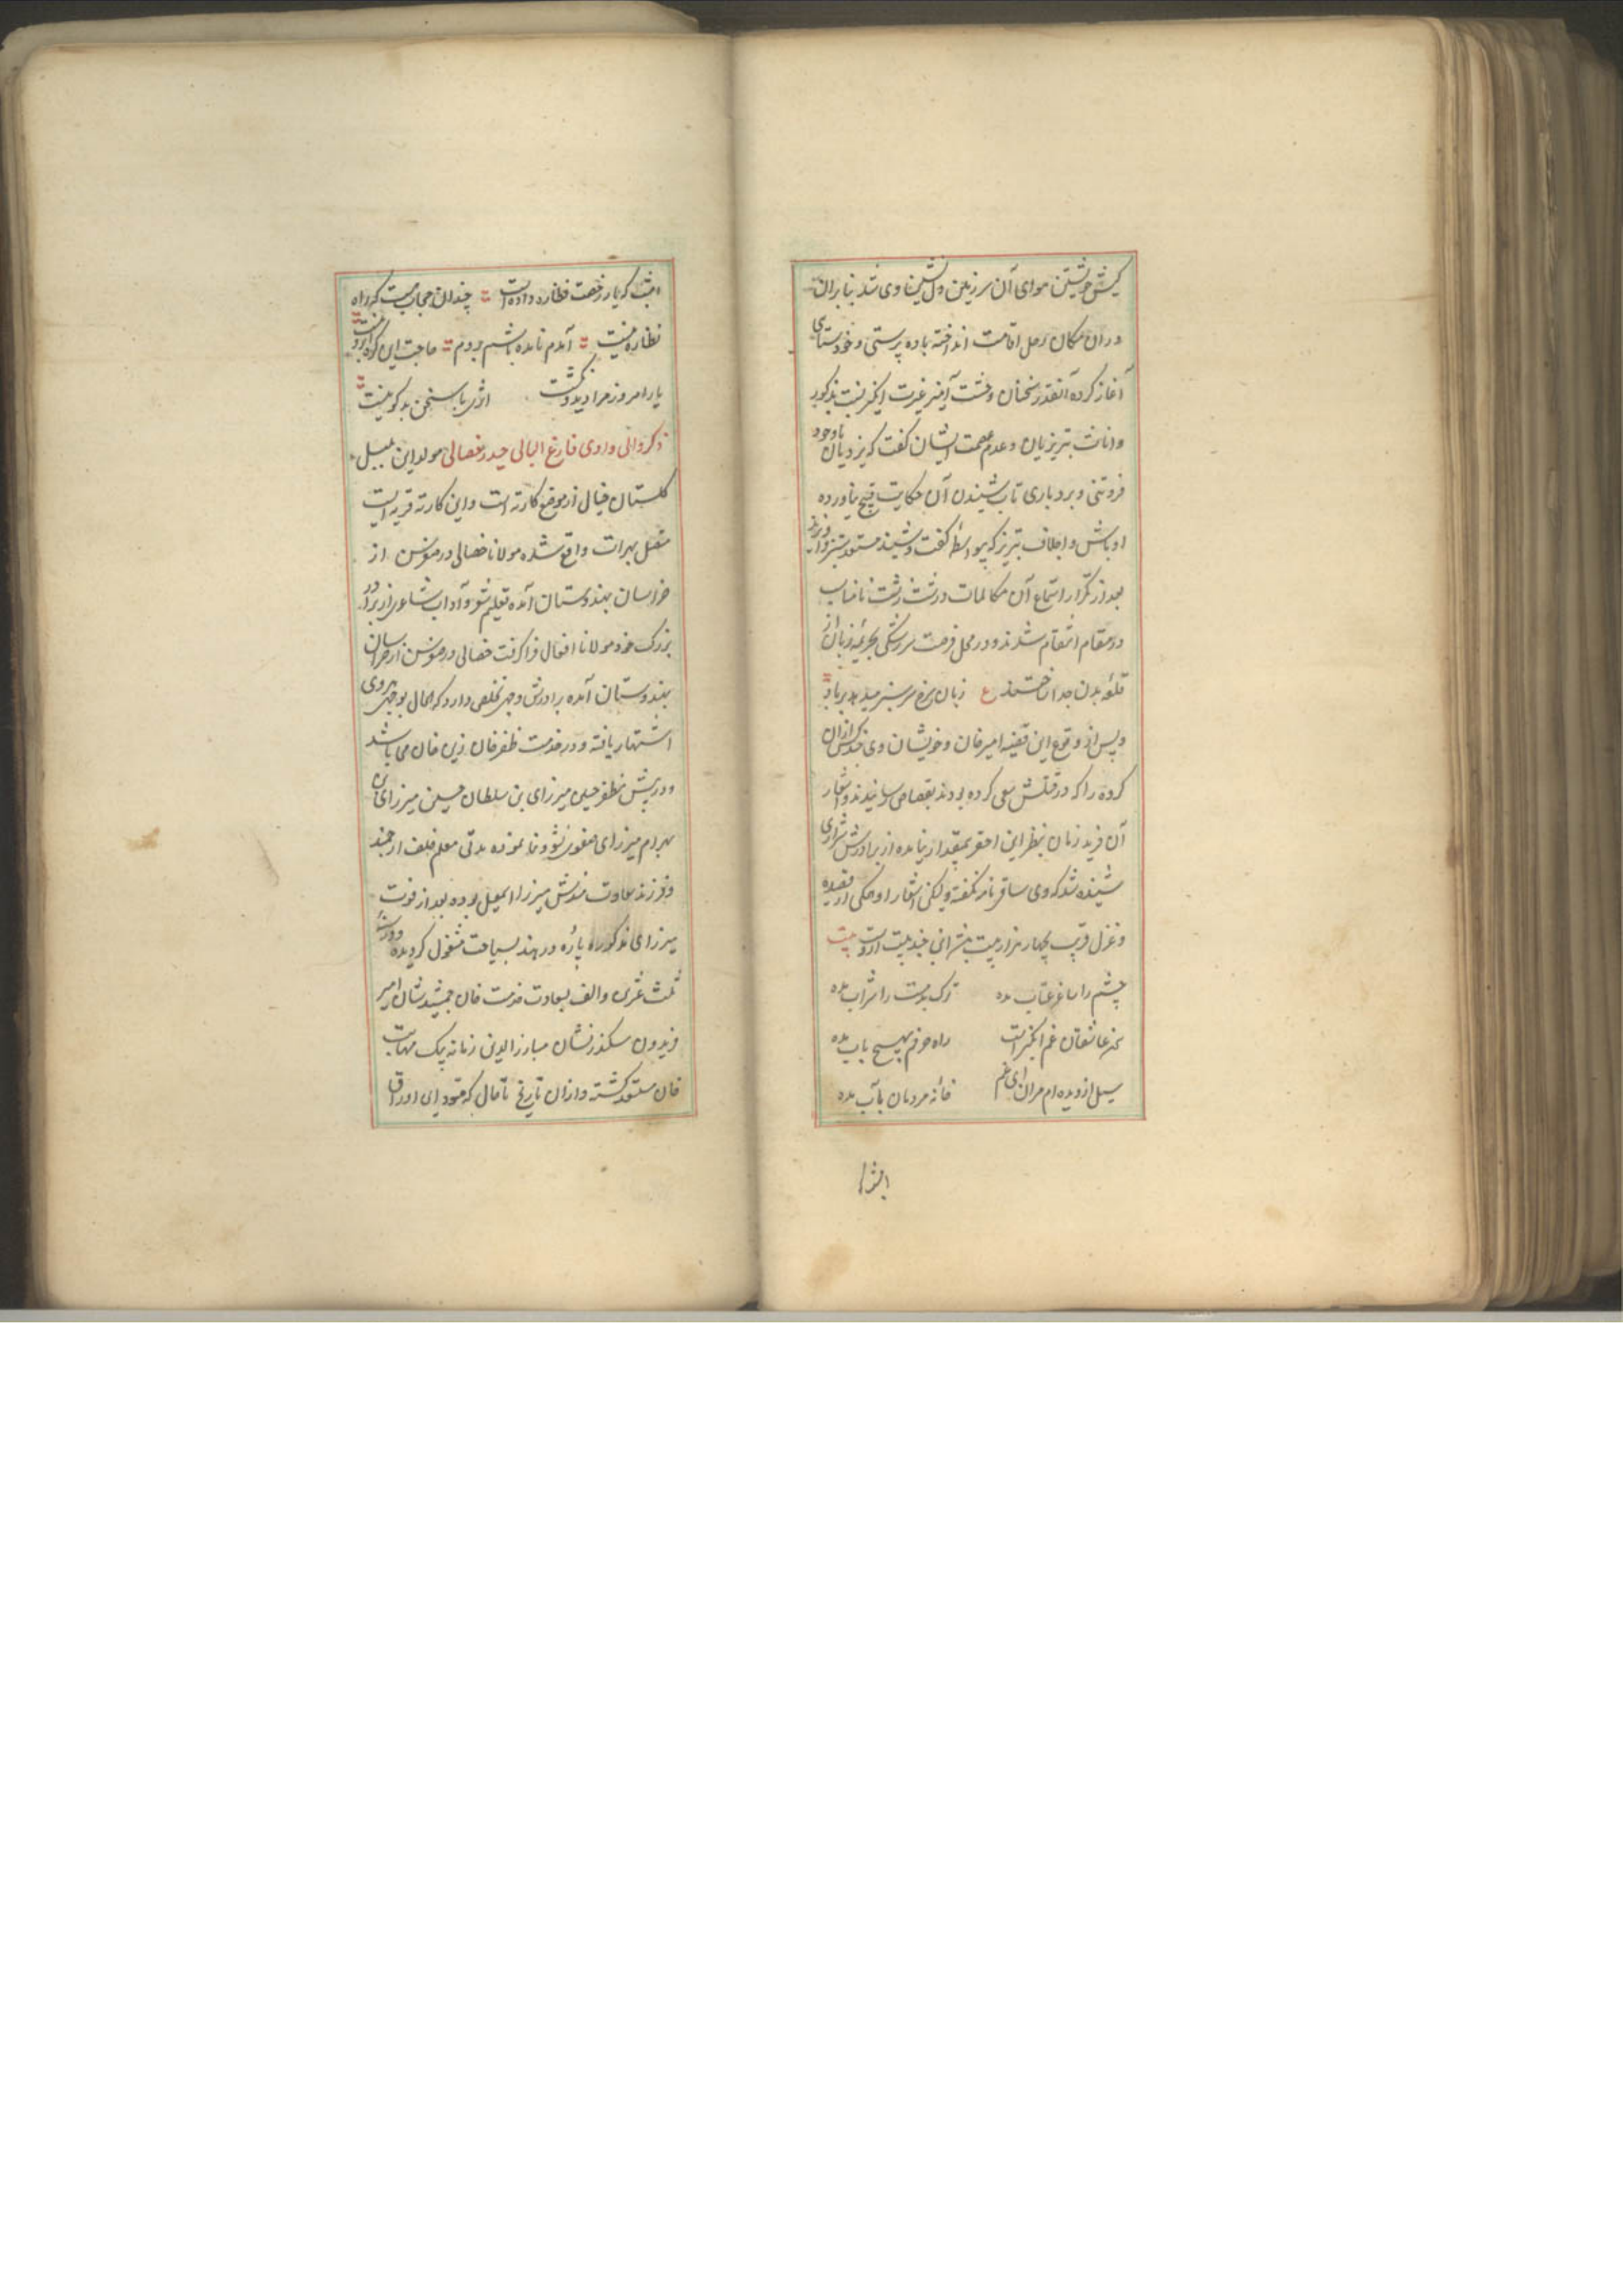 کیش خویشتن هوای آن سرزمین دل نشین وی شد بنابران
دران مکان رحل اقامت انداخته باده پرستی و خودستای
آغاز کرده آنقدر سخنان وحشت آمیز غیرت انگیز نسبت بذکور
واناث تبریزیان و عدم عصمت ایشان گفت که یزدیان باوجود
فروتنی و بردباری تاب شنیدن آن حکایت قبیح نیاورده
اوباش و اجلاف تبریز که بیواسطه گفت و شنید مستعد ستیز واند
بعد از تکرار استماع آن مکالمات درشت زشت نامناسب
در مقام انتقام شدند و در محل فرصت سرش بجریمه زبان از
قلعه بدن جدا ساختند ع زبان سرخ سر سبز میدهد برباد
و پس از وقوع این قضیه امیرخان و خویشان وی چند کس ازان
کروه را که در قتلش سعی کرده بودند بقصاص رسانیدند و اشعار
آن فرید زمان بنظر این احقر بمقدار نیامده از برادرش شراری
شنیده شد که وی ساقی نامه نگفته ولیکن اشعار او همکی از قصیده
و غزل قریب بچهار هزار بیت میشود این چند بیت ازوست بیت
چشم را ساغر عتاب مده ترک بدمست را شراب مده
بحر عاشقان غم انگیز است راه حرفم بهیچ باب مده
سیل از دیده ام مران ای غم خانه مردمان بآب مده
ایضا
امشب که یار رخصت نظاره داده است چندان حجاب هست که راه
نظاره نیست آمدم نامده باشم بردم حاجت این کره ابرو نیست
یار امروز مرا دید و گذشت اثری با سخن بدکو نیست
ذکر والی وادی فارغ البالی حیدر خصالی مولد این بلبل
کلستان خیالی از موضع کارته است و این کارته قریه ایست
متصل بهرات واقع شده مولانا خصالی در صغر سن از
خراسان بهندوستان آمده تعلیم شعر و آداب شاعری از برادر
بزرگ خود مولانا افعال فراگرفت خصالی در صغر سن از خراسان
بهندوستان آمده برادرش وجهی تخلص دارد که الحال بوجهی هروی
اشتهار یافته و در خدمت ظفرخان زین خان می باشد
و در پیش مظفر حسین میرزای بن سلطان حسین میرزای بن
بهرام میرزای صفوی نشو و نما نموده مدتی معلم خلف ارجمند
و فرزند سعادت مندش میرزا اسمعیل بوده بعد از فوت
میرزای مذکور پاره در هند بسیاحت مشغول گردیده و در سنه
ثلث عشرین و الف بسعادت خدمت خان جمشید نشان امیر
فریدون سکندر نشان مبارز الدین زمانه بیک مهابت
خان مستعد گشته و ازان تاریخ تا حال که مسود این اوراق